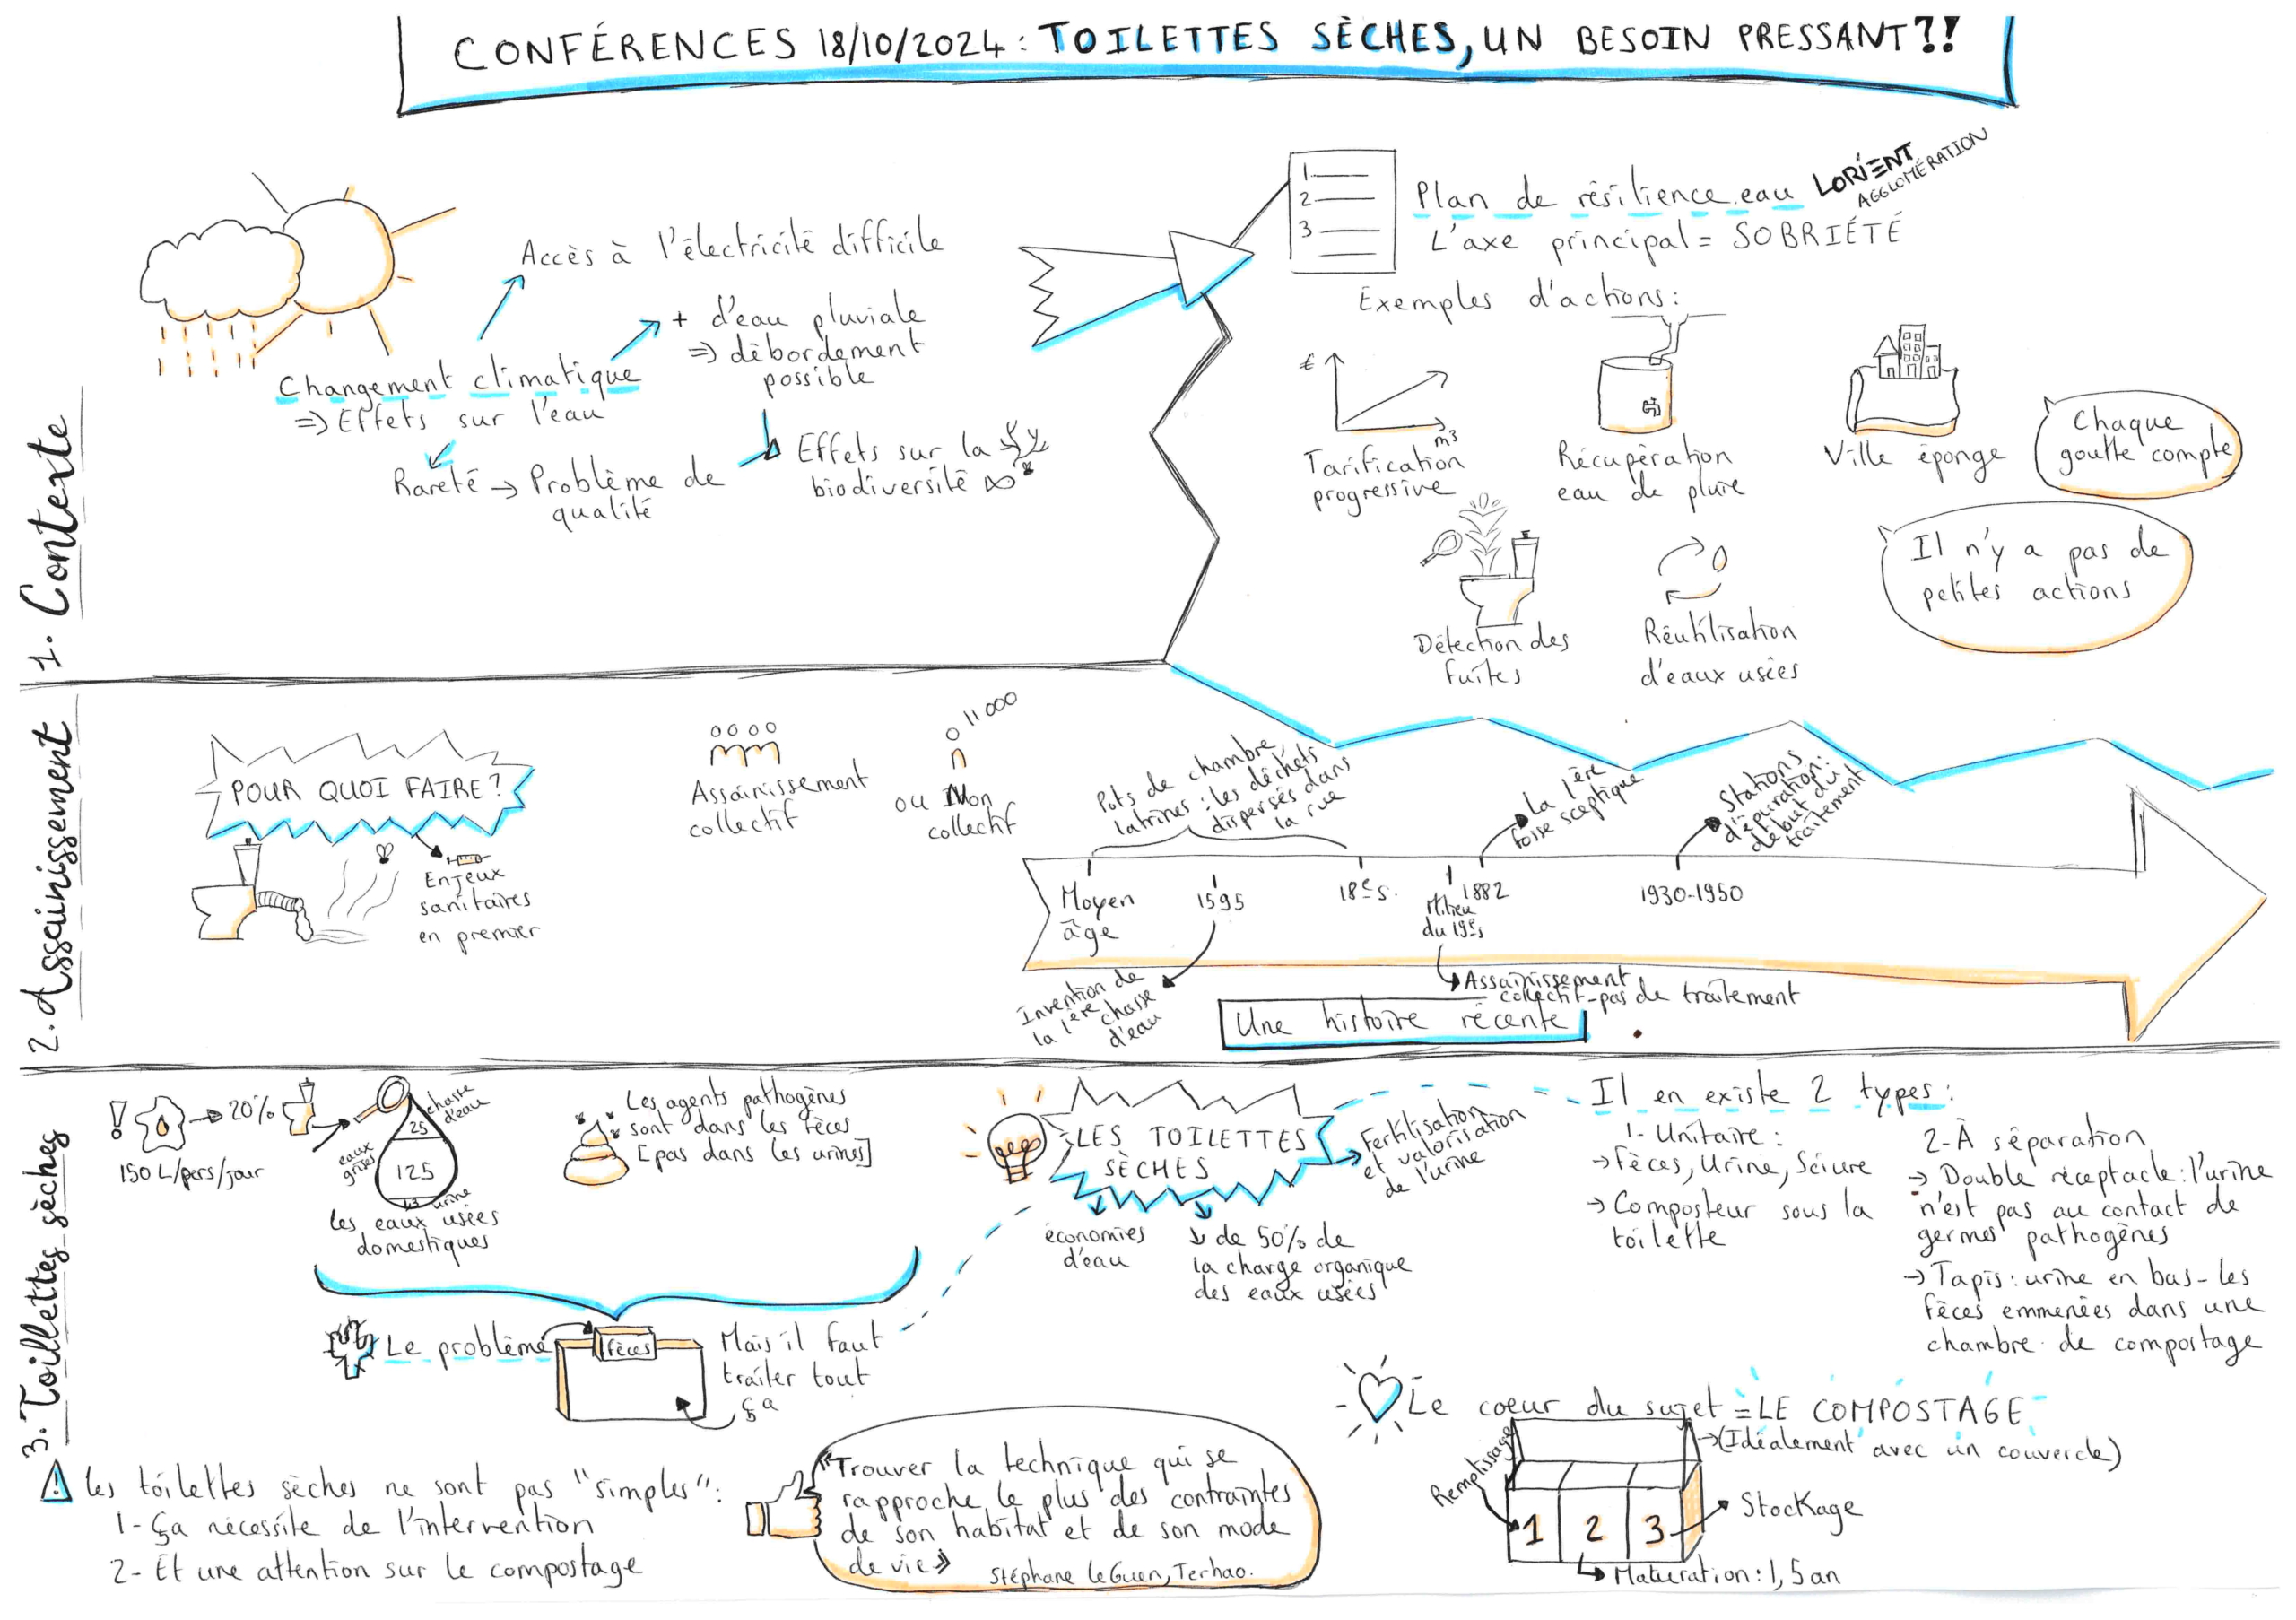 CONFÉRENCES 18/10/2024: TOILETTES SÈCHES, UN BESOIN PRESSANT?!
1. Contexte
Accès à l'électricité difficile
+ d'eau pluviale
=> débordement
possible
Changement climatique
=> Effets sur l'eau
Rareté -> Problème de
qualité
Effets sur la
biodiversité
1
2
3
Plan de résilience eau
LORIENT
AGGLOMÉRATION
L'axe principal = SOBRIÉTÉ
Exemples d'actions:
€
m3
Tarification
progressive
Récupération
eau de pluie
Ville éponge
Chaque
goutte compte
Détection des
fuites
Réutilisation
d'eaux usées
Il n'y a pas de
petites actions
2. Assainissement
POUR QUOI FAIRE?
Enjeux
sanitaires
en premier
Assainissement
collectif
ou Non
collectif
11 000
Pots de chambre,
latrines: les déchets
dispersés dans
la rue
La 1ère
fosse sceptique
Stations
d'épuration:
début du
traitement
Moyen
âge
1595
18e s.
Milieu
du 19e s
1882
1930-1950
Invention de
la 1ère chasse
d'eau
Assainissement
collectif-pas de traitement
Une histoire récente
3. Toilettes sèches
! -> 20%
150 L/pers/jour
chasse
d'eau
25
eaux
grises
125
1,3 urine
Les eaux usées
domestiques
Les agents pathogènes
sont dans les fèces
[pas dans les urines]
LES TOILETTES
SÈCHES
Fertilisation
et valorisation
de l'urine
économies
d'eau
↓ de 50% de
la charge organique
des eaux usées
Il en existe 2 types:
1- Unitaire:
-> Fèces, Urine, Sciure
-> Composteur sous la
toilette
2-À séparation
-> Double réceptacle: l'urine
n'est pas au contact de
germes pathogènes
-> Tapis: urine en bas-les
fèces emmenées dans une
chambre de compostage
Le problème
fèces
Mais il faut
traiter tout
ça
Le coeur du sujet = LE COMPOSTAGE
->(Idéalement avec un couvercle)
Remplissage
1 2 3
Stockage
Maturation: 1,5 an
Les toilettes sèches ne sont pas "simples":
1- Ça nécessite de l'intervention
2- Et une attention sur le compostage
«Trouver la technique qui se
rapproche le plus des contraintes
de son habitat et de son mode
de vie»
Stéphane Le Guen, Terhao.